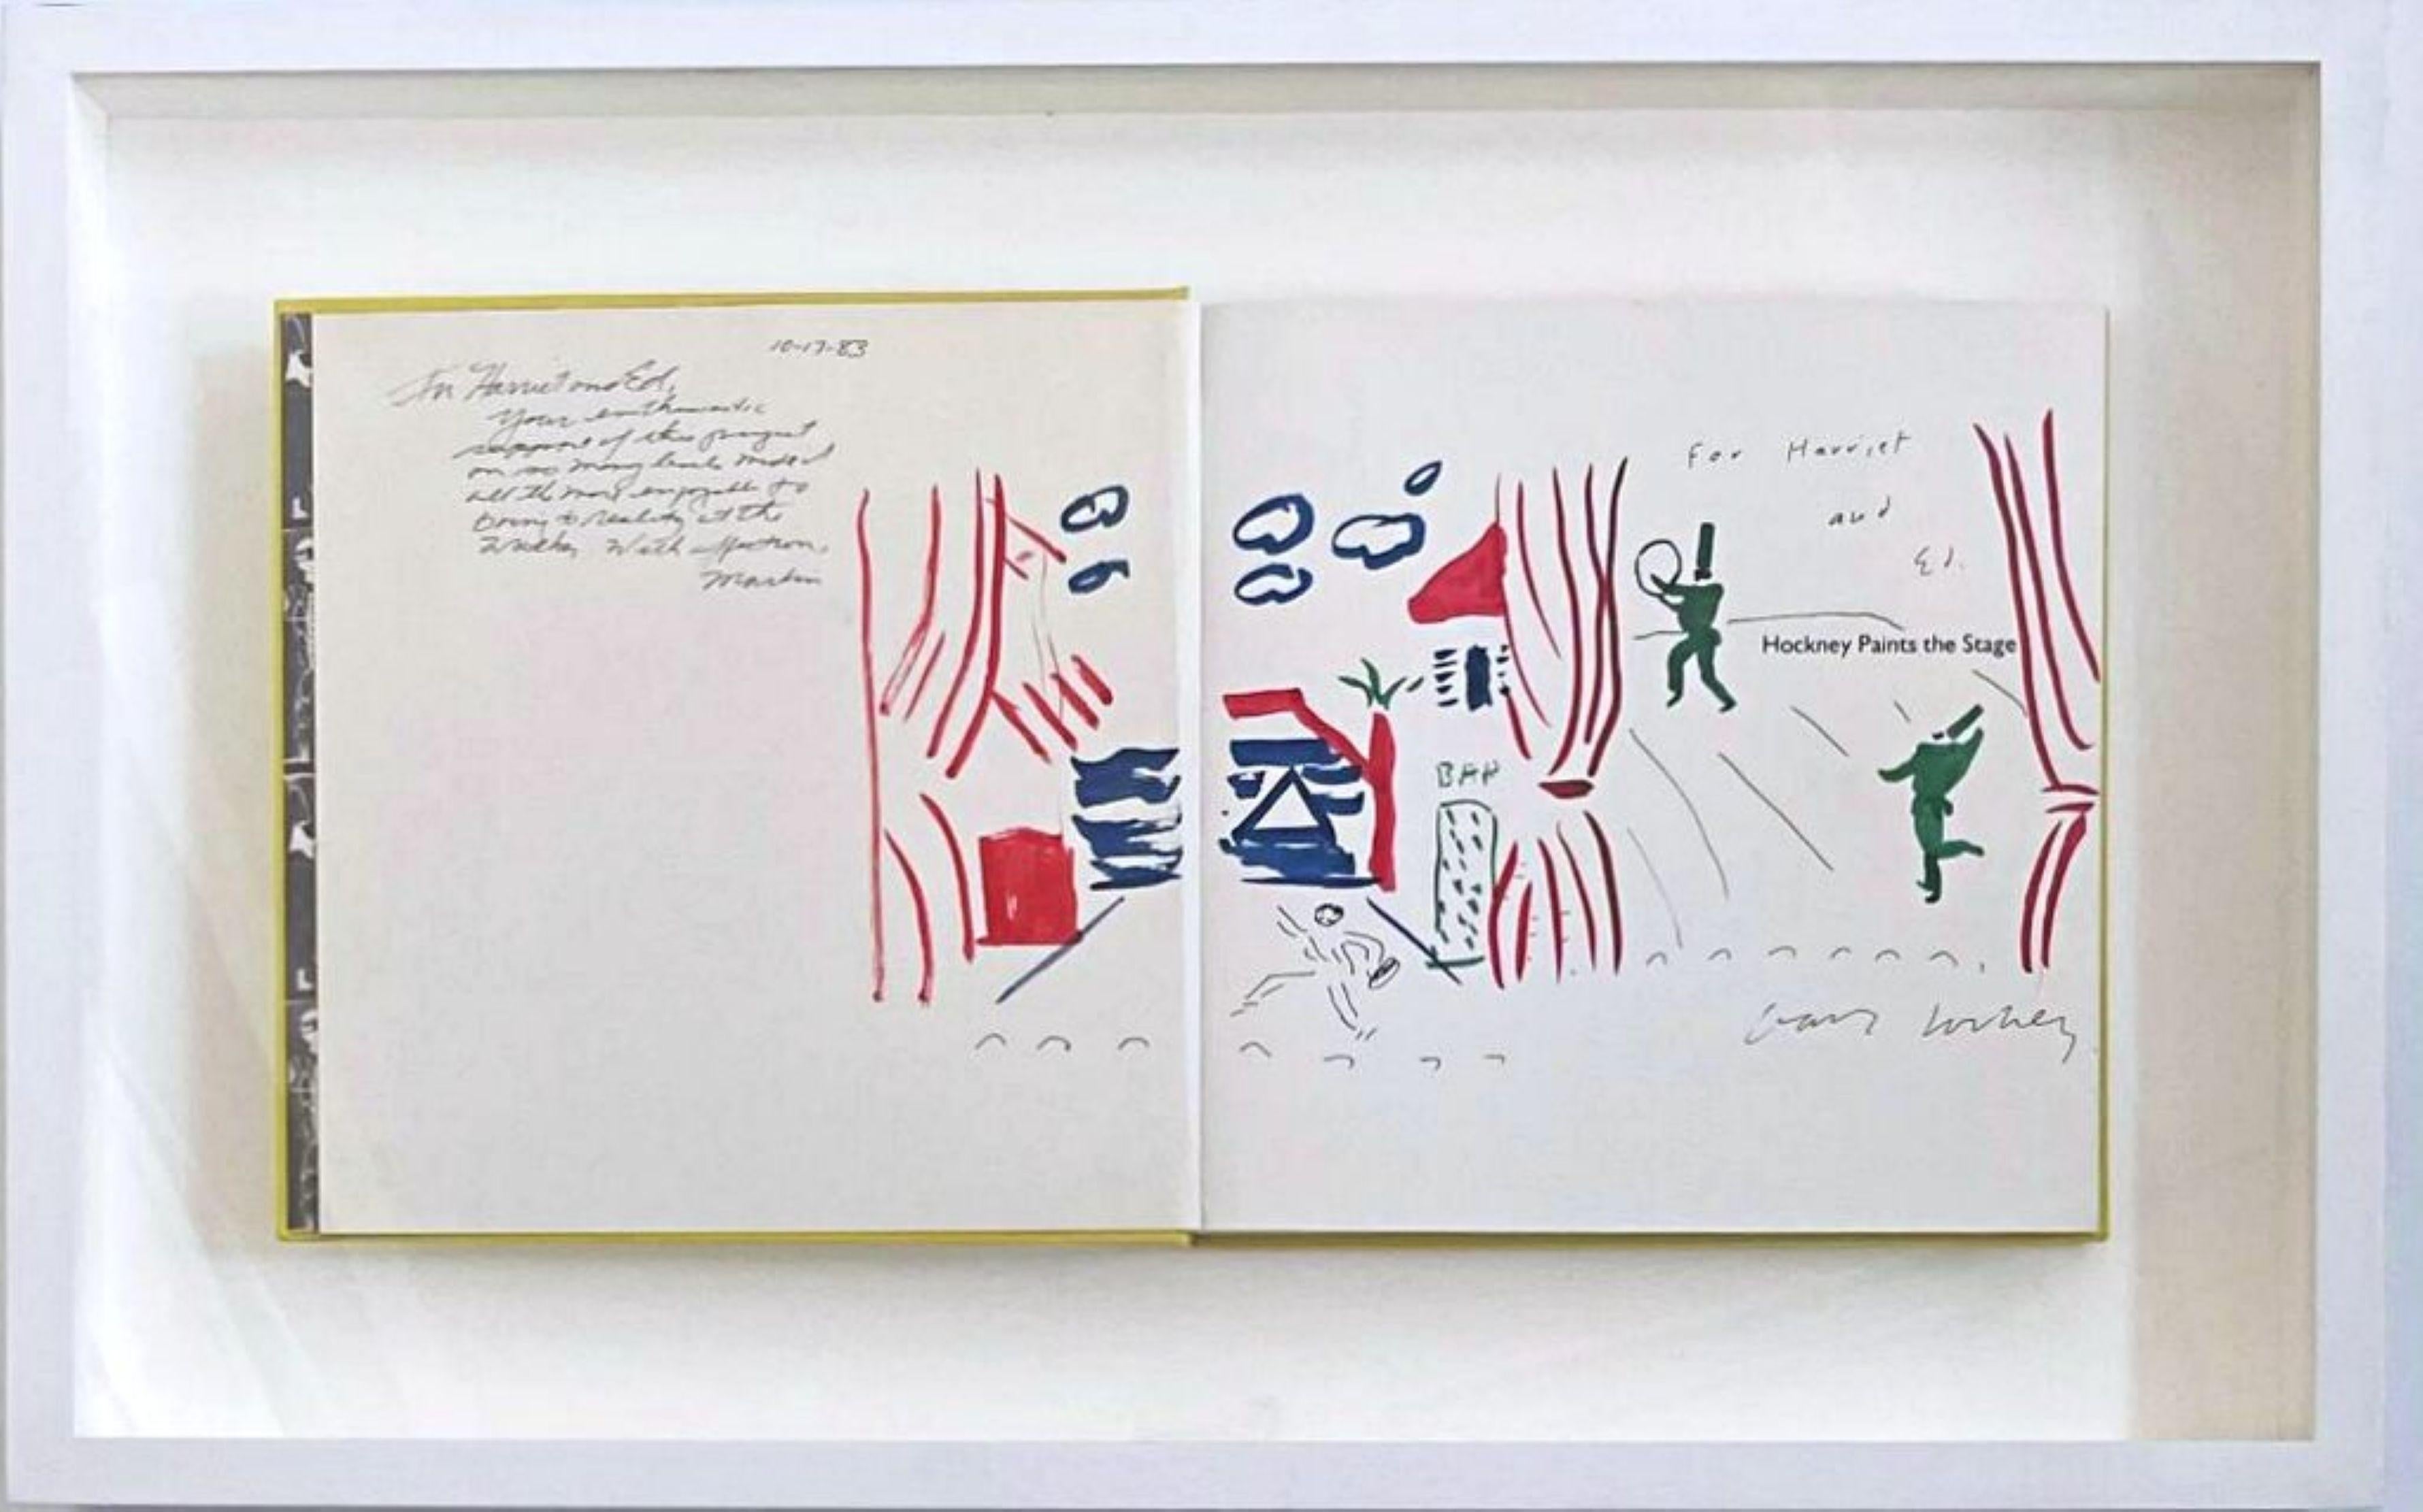 10-17-83
For Harriet and Ed,
Your enthusiastic
support of this project
on so many levels made it
all the more enjoyable to
bring to reality at the
Walker. With affection,
Martin
For Harriet
and
Ed.
Hockney Paints the Stage
BAP
David Hockney